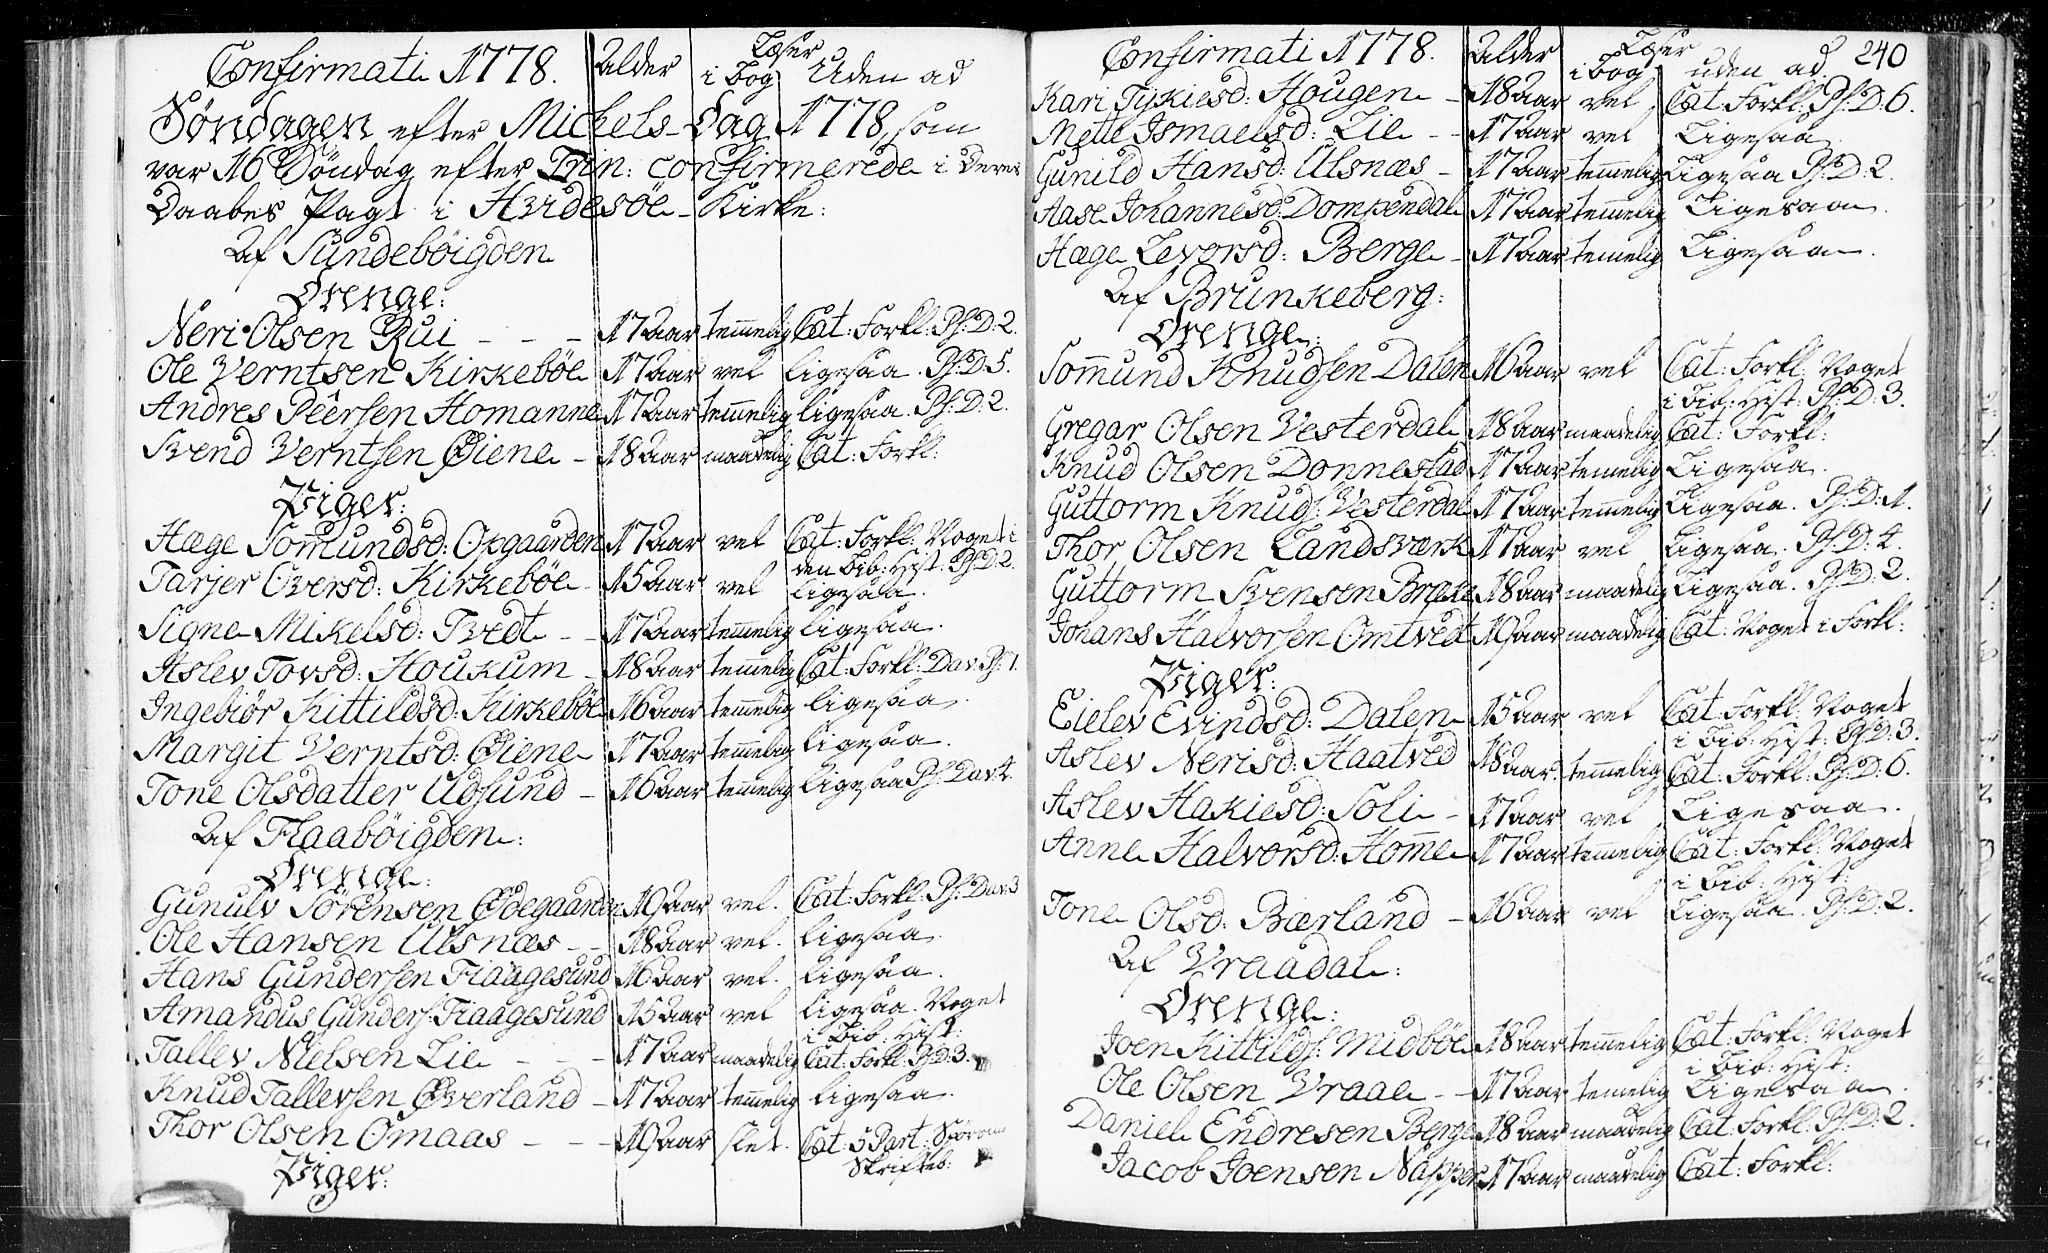 Confirmati 1778. Alder Læser i Bog Uden ad
Søndagen efter Mickels Dag 1778, som
var 16 Söndag efter Trin: confirmerede i deres
Daabes Pagt i Hvidesöe Kirke:
Af Sundeböigden
Drenge:
Neri Olsen Rui - - - 17 Aar temmelig Cat: Forkl: Ps: D: 2.
Ole Verntsen Kirkeböe 17 Aar vel ligesaa. Ps: D: 5.
Andres Peersen Homanne 17 Aar temmelig ligesaa. Ps: D: 2.
Svend Verntsen Øiene - 18 Aar maadelig Cat: Forkl:
Piger:
Hæge Somundsd: Opgaarden 17 Aar vel Cat: Forkl: Noget i
den Bib: Hist: Ps: D: 2.
Tarjer Oversd: Kirkeböe - 15 Aar vel ligesaa.
Signe Mikelsd: Tvedt - - 17 Aar temmelig ligesaa.
Aslev Tovsd: Houkum - 18 Aar temmelig Cat: Forkl: Dav: Ps: 1.
Ingebiör Kittildsd: Kirkeböe 16 Aar temmelig ligesaa.
Margit Verntsd: Øiene 17 Aar temmelig ligesaa.
Tone Olsdatter Udsund - 16 Aar temmelig ligesaa Ps: Dav: 4.
Af Flaaböigden:
Drenge:
Gunulv Sörensen Ødegaarden 19 Aar vel. Cat: Forkl: Ps: Dav: 3
Ole Hansen Ulsnæs - - 18 Aar vel. ligesaa.
Hans Gundersen Fiaagesund 16 Aar vel. ligesaa.
Amandus Gunders: Fiaagesund 15 Aar vel ligesaa. Noget
i Bib: Hist:
Tallev Nielsen Lie - - - 17 Aar maadelig Cat: Forkl: Ps: D: 3.
Knud Tallevsen Øverland - 17 Aar temmelig ligesaa.
Thor Olsen Omaas - - - 19 Aar slet. Cat: 5 Part:
Skrifteb:
Piger:
Confirmati 1778. Alder Læser i Bog uden ad 240
Kari Tykiesd: Hougen - 18 Aar vel Cat: Forkl: Ps: D: 6.
Mette Ismaelsd: Lie - - 17 Aar vel Ligesaa.
Gunild Hansd: Ulsnæs - 17 Aar temmelig Ligesaa Ps: D: 2.
Aase Johannesd: Dompendal 17 Aar temmelig Ligesaa.
Hæge Levorsd: Berge - 17 Aar temelig Ligesaa.
Af Brunkeberg:
Drenge:
Sommund Knudsen Dalen 16 Aar vel Cat: Forkl: Noget
i Bib: Hist: Ps: D: 3.
Gregar Olsen Vesterdal 18 Aar maadelig Cat: Forkl:
Knud Olsen Donnestad 17 Aar temelig Ligesaa.
Guttorm Knuds: Vesterdal 17 Aar temmelig Ligesaa. Ps: D: 1.
Thor Olsen Landsværk 17 Aar vel Ligesaa. Ps: D: 4.
Guttorm Svensen Bræke 18 Aar maadelig Ligesaa. Ps: D: 2.
Johans Halvorsen Omtvedt 19 Aar maadelig Cat: Noget i Forkl:
Piger:
Eielev Evindsd: Dalen 15 Aar vel Cat: Forkl: Noget
i Bib: Hist: Ps: D: 3.
Aslev Nerisd: Haatved 18 Aar temmelig Cat: Forkl: Ps: D: 6.
Aslev Hakiesd: Soli - 17 Aar vel Ligesaa.
Anne Halvorsd: Homme 17 Aar temmelig Cat: Forkl: Noget
i Bib: Hist:
Tone Olsd: Bærland - 16 Aar vel Ligesaa. Ps: D: 2.
Af Vraadal:
Drenge:
Joen Kittilds: Midböe 18 Aar temmelig Cat: Forkl: Noget
i Bib: Hist:
Ole Olsen Vraae - - 17 Aar temelig Ligesaa.
Daniel Endresen Berge 18 Aar maadelig Cat: Forkl: Ps: D: 2.
Jacob Joensen Napper 17 Aar maadelig Cat: Forkl: